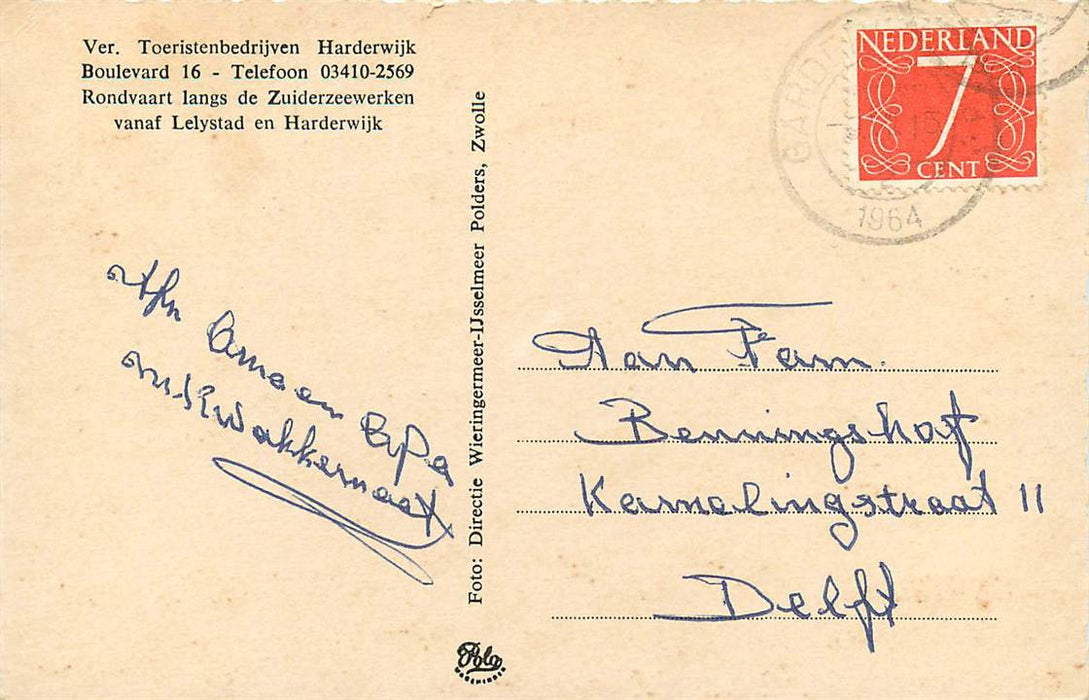 Ver. Toeristenbedrijven Harderwijk
Boulevard 16 - Telefoon 03410-2569
Rondvaart langs de Zuiderzeewerken
vanaf Lelystad en Harderwijk
NEDERLAND
7
CENT
1964
Foto: Directie Wieringermeer-IJsselmeer Polders, Zwolle
Oma en Opa
Kwakkernaat
Aan Fam.
Benningshof
Kamelingstraat 11
Delft
Polo